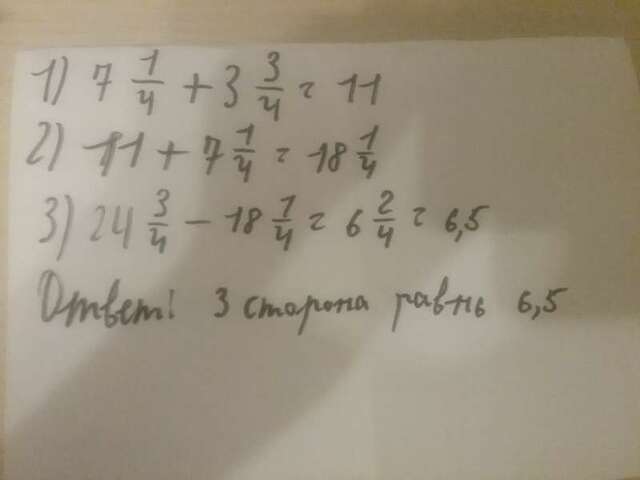 1) 7 1/4 + 3 3/4 = 11
2) 11 + 7 1/4 = 18 1/4
3) 24 3/4 - 18 1/4 = 6 2/4 = 6,5
Ответ: 3 сторона равнь 6,5